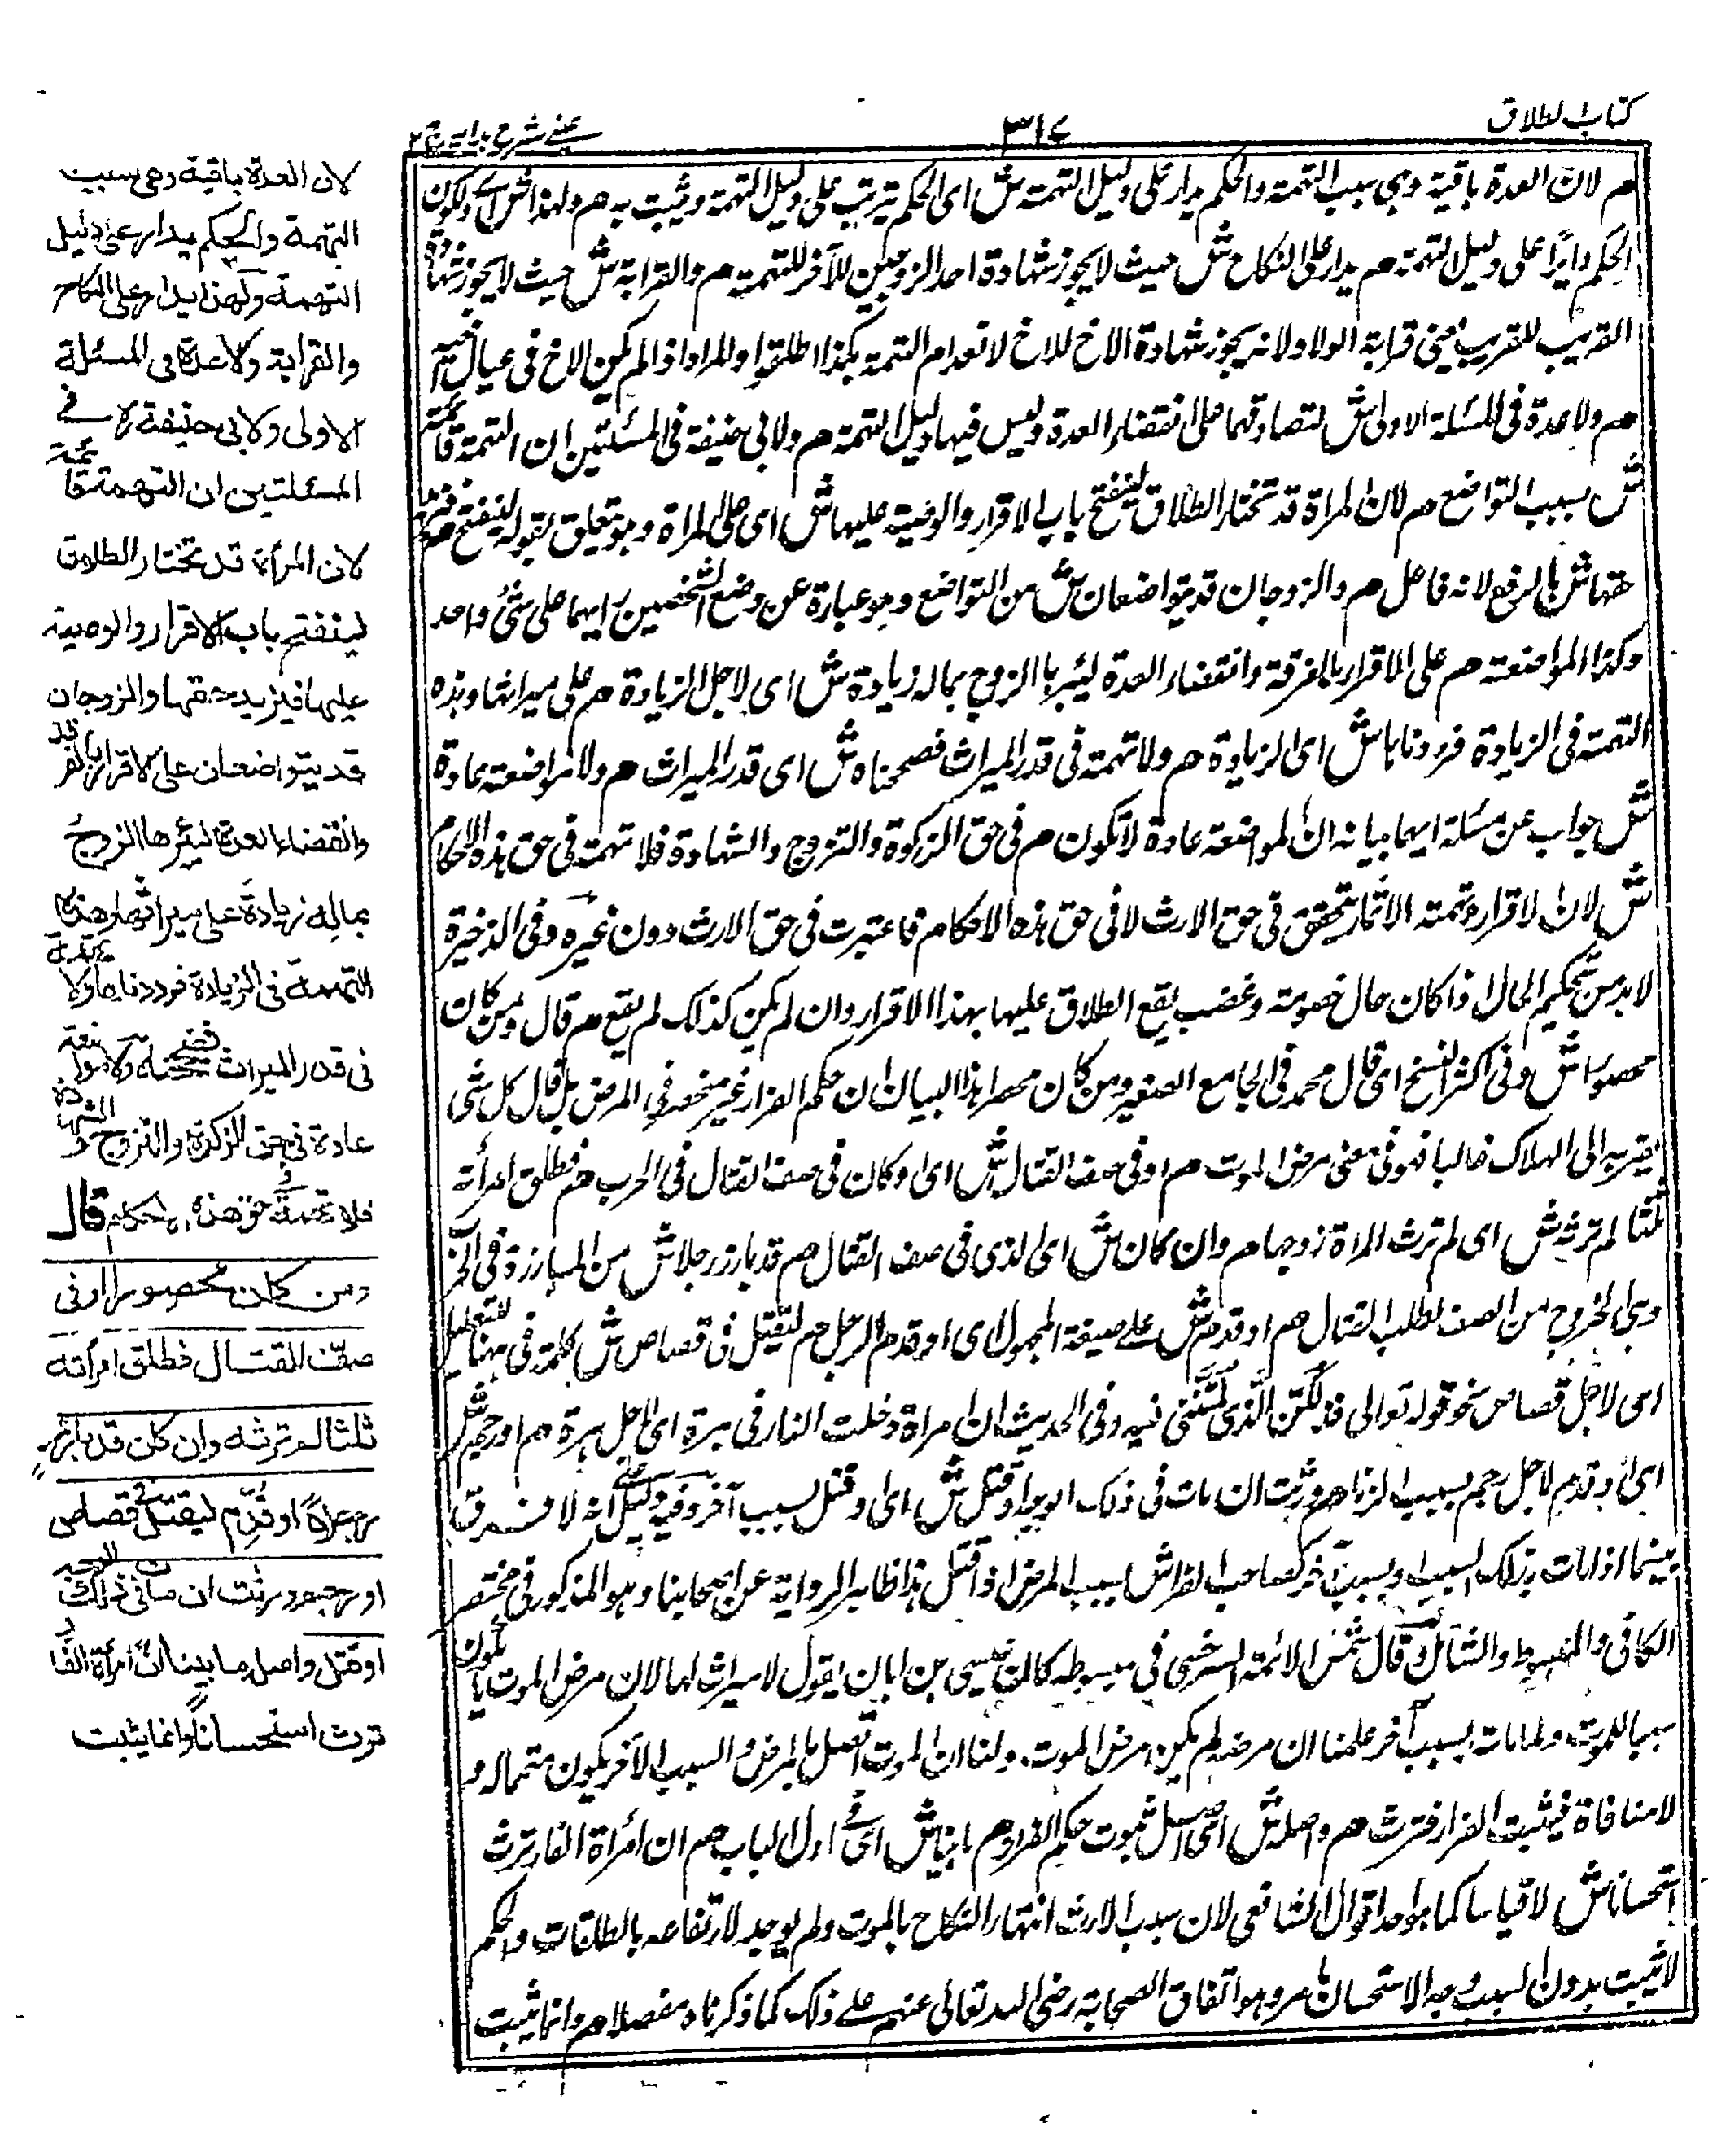 كتاب الطلاق
٣١٤
عينى شرح هداية ج٢
هم لان العدة باقية وهى سبب التهمة والحكم يدار على دليل التهمة ش اى الحكم يترتب على دليل التهمة ويثبت به هم ولهذا ش اى ولكون
الحكم دايرا على دليل التهمة هم يدار على النكاح ش حيث لا يجوز شهادة احد الزوجين للآخر للتهمة هم والقرابة ش حيث لا يجوز شهادة
القريب للقريب يعنى قرابة الولاد لانه يجوز شهادة الاخ للاخ لانعدام التهمة هكذا اطلقوا والمراد اذا لم يكن الاخ فى عيال اخيه
هم ولا عدة فى المسئلة الاولى ش لتصادقهما على انقضاء العدة وليس فيها دليل التهمة هم ولابى حنيفة فى المسئلتين ان التهمة قائمة
ش بسبب التواضع هم لان المراة قد تختار الطلاق لينفتح باب الاقرار والوصية عليها ش اى على المراة وهو يتعلق بقوله لينفتح هم فيزيد
حقها ش بالرفع لانه فاعل هم والزوجان قد يتواضعان ش من التواضع وهو عبارة عن وضع الشخصين رايهما على شئ واحد
وكذا المواضعة هم على الاقرار بالفرقة وانقضاء العدة ليبرها الزوج بماله زيادة ش اى لاجل الزيادة هم على ميراثها وهذه
التهمة فى الزيادة فرددناها ش اى الزيادة هم ولا تهمة فى قدر الميراث فصححناه ش اى قدر الميراث هم ولا مواضعة عادة
ش جواب عن مسئلة ابيها بيانه ان المواضعة عادة لا تكون هم فى حق الزكوة والتزوج والشهادة فلا تهمة فى حق هذه الاحكام
ش لان الاقرار وتهمة الايثار يتحقق فى حق الارث لا فى حق هذه الاحكام فاعتبرت فى حق الارث دون غيره وفى الذخيرة
لا بد من تحكيم الحال اذا كان حال خصومة وغضب يقع الطلاق عليها بهذا الاقرار وان لم يكن كذلك لم يقع هم قال ومن كان
محصورا ش وفى اكثر النسخ اى قال محمد فى الجامع الصغير ومن كان محصرا هذا البيان ان حكم الفرار غير منحصر فى المرض بل قال كل شى
يقربه الى الهلاك غالبا فهو فى معنى مرض الموت هم او فى صف القتال ش اى او كان فى صف القتال فى الحرب هم فطلق امرأته
ثلثا لم ترثه ش اى لم ترث المراة زوجها هم وان كان ش اى الذى فى صف القتال هم قد بارز رجلا ش من المبارزة فى الحرب
وهى الخروج من الصف لطلب القتال هم او قدم ش على صيغة المجهول اى او قدم الرجل هم ليقتل فى قصاص ش كلمة فى ههنا للتعليل
اى لاجل قصاص نحو قوله تعالى فذلكن الذى لمتننى فيه وفى الحديث ان امراة دخلت النار فى هرة اى لاجل هرة هم او رجم ش
اى او قدم لاجل رجم بسبب الزنا هم ورثت ان مات فى ذلك الوجه او قتل ش اى او قتل بسبب آخر وفيه دليل على انه لا فرق
بينهما اذا مات بذلك السبب او بسبب آخر كصاحب الفراش بسبب المرض اذا قتل هذا ظاهر الرواية عن اصحابنا وهو المذكور فى مختصر
الكافى والمبسوط والشامل وقال شمس الائمة السرخسى فى مبسوطه كان عيسى بن ابان يقول لا ميراث لها لان مرض الموت ما يكون
سببا للموت ولما مات بسبب آخر علمنا ان مرضه لم يكن مرض الموت ولنا ان الموت اتصل بالمرض والسبب الآخر يكون متمما له و
لا منافاة فيثبت الفرار فترث هم واصله ش اى اصل ثبوت حكم الفرار هم ما بينا ش اى فى اول الباب هم ان امرأة الفار ترث
استحسانا ش لا قياسا كما هو احد اقوال الشافعى لان سبب الارث انتهاء النكاح بالموت ولم يوجد لارتفاعه بالطلقات والحكم
لا يثبت بدون السبب وجه الاستحسان ما مر وهو اتفاق الصحابة رضى الله تعالى عنهم على ذلك كما ذكرناه مفصلا هم وانما يثبت
لان العدة باقية وهى سبب
التهمة والحكم يدار على دليل
التهمة ولهذا يدار على النكاح
والقرابة ولا عدة فى المسئلة
الاولى ولابى حنيفة رح فى
المسئلتين ان التهمة قائمة
لان المرأة قد تختار الطلاق
لينفتح باب الاقرار والوصية
عليها فيزيد حقها والزوجان
قد يتواضعان على الاقرار بالفرقة
وانقضاء العدة ليبرها الزوج
بماله زيادة على ميراثها وهذه
التهمة فى الزيادة فرددناها ولا تهمة
فى قدر الميراث فصححناه ولا مواضعة
عادة فى حق الزكوة والتزوج والشهادة
فلا تهمة فى حق هذه الاحكام قال
ومن كان محصورا او فى
صف القتال فطلق امرأته
ثلثا لم ترثه وان كان قد بارز
رجلا او قدم ليقتل فى قصاص
او رجم ورثت ان مات فى ذلك الوجه
او قتل واصله ما بينا ان امرأة الفار
ترث استحسانا وانما يثبت